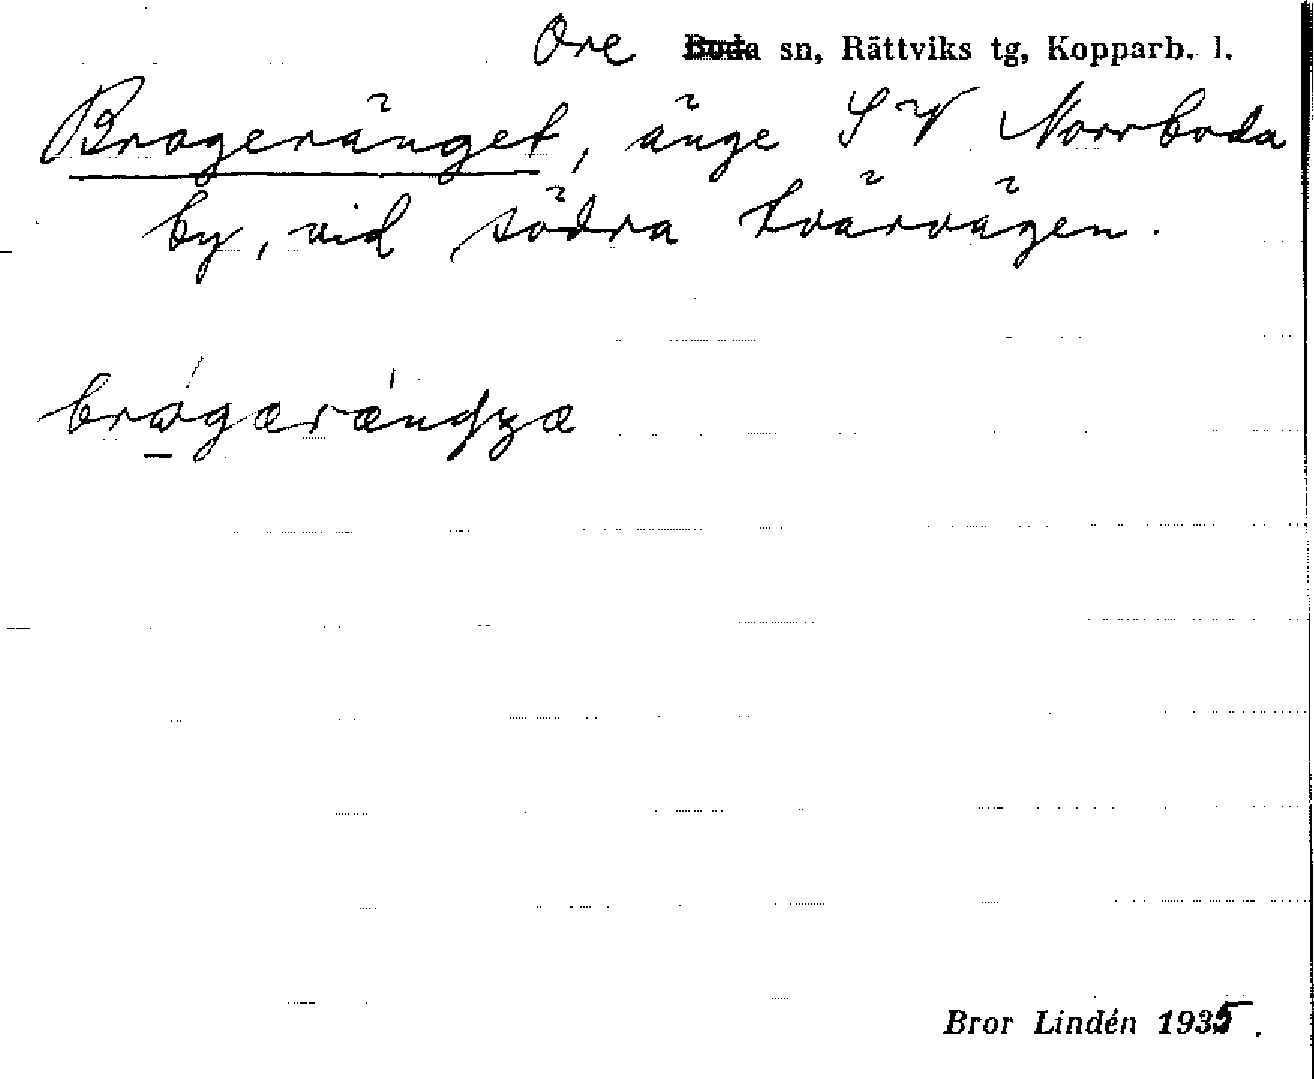 Ore Boda sn, Rättviks tg, Kopparb. l.
Brogeränget, änge SV Norrboda
by, vid södra tvärvägen.
Bror Lindén 1935.